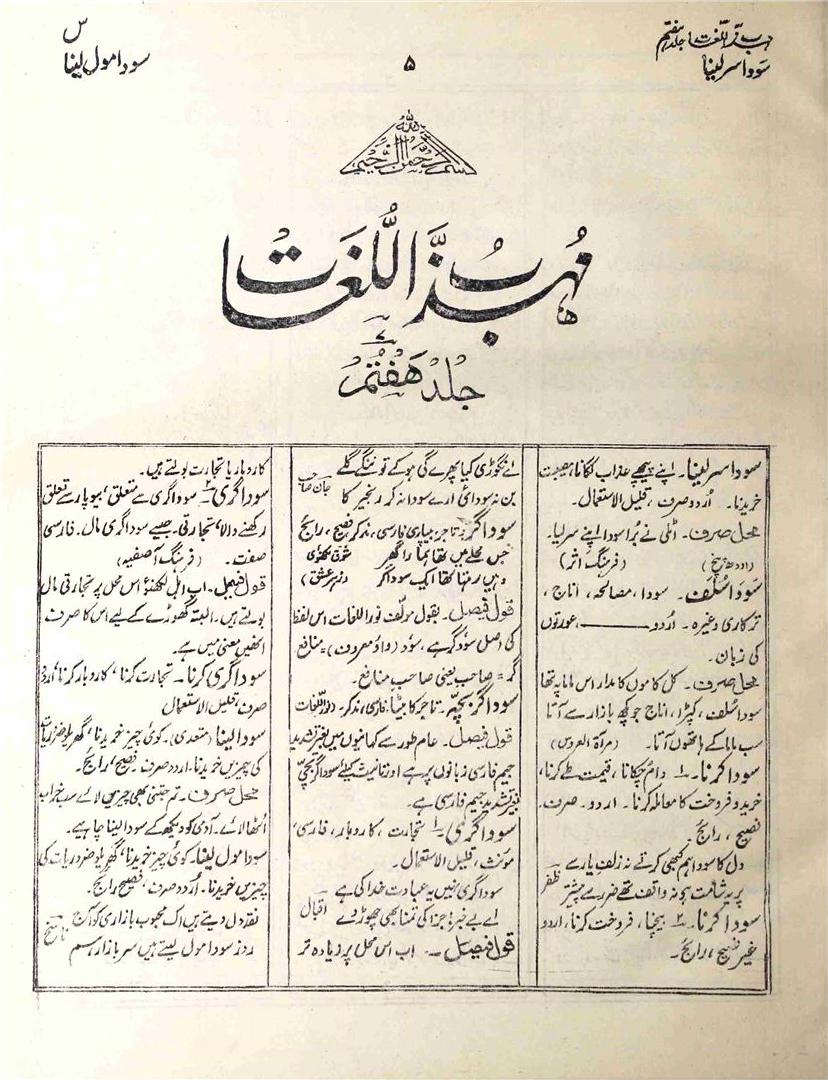 مہذب اللغات جلد ہفتم
سودا سر لینا
۵
س
سودا مول لینا
بسم اللہ الرحمن الرحیم
مُہذَّبُ اللُّغَات
جِلد ہَفتُم
سودا سر لینا۔ اپنے پیچھے عذاب لگانا، مصیبت
خریدنا۔ اُردو صرف، قلیل الاستعمال۔
محل صرف۔ اٹلی نے بُرا سودا اپنے سر لیا۔
(اودھ پنچ) (فرہنگ اثر)
سودا سُلَف۔ سودا، مصالحہ، اناج،
ترکاری وغیرہ۔ اُردو ـــــــــ، عورتوں
کی زبان۔
محل صرف۔ کل کاموں کا مدار اس ماما پہ تھا
سودا سُلف، کپڑا، اناج جو کچھ بازار سے آتا
سب ماما کے ہاتھوں آتا۔ (مرآۃ العروس)
سودا کرنا۔ ۱ دام چکانا، قیمت طے کرنا،
خرید و فروخت کا معاملہ کرنا۔ اردو۔ صرف۔
فصیح، رائج۔
دل کا سودا ہم کبھی کرتے نہ زلفِ یار سے
پر یہ شامت ہم نہ واقف تھے ضرر سے پیشتر ظفر
سودا کرنا۔ ۲ بیچنا، فروخت کرنا، اردو
غیر فصیح، رائج۔
اے نگوڑی کیا پھرے گی ہو کے تو ننگے گلے
بن نہ سودائی ارے سودا نہ کر زنجیر کا جان صاحب
سوداگر۔ تاجر، بیاپاری فارسی، مذکر، فصیح، رائج
جس محلے میں تھا ہمارا گھر شوق لکھنوی
وہیں رہتا تھا ایک سوداگر (زہر عشق)
قول فیصل۔ بقول مولف نور اللغات اس لفظ
کی اصل سُودگر ہے، سُود (واو معروف) = منافع
گر = صاحب یعنی صاحب منافع۔
سوداگر بچہ۔ تاجر کا بیٹا، فارسی، مذکر۔ (نور اللغات)
قول فیصل۔ عام طور سے کہانیوں میں بغیر تشدید
جیم فارسی زبانوں پر ہے اور تانیث کیلئے سوداگر بچی
بغیر تشدید جیم فارسی ہے۔
سوداگری۔ ۱ تجارت، کاروبار، فارسی،
مونث، قلیل الاستعمال۔
سوداگری نہیں یہ عبادت خدا کی ہے
اے بے خبر! جزا کی تمنا بھی چھوڑ دے اقبال
قول فیصل۔ اب اس محل پر زیادہ تر
کاروبار یا تجارت بولتے ہیں۔
سوداگری۔ ۲ سوداگری سے متعلق، بیوپار سے تعلق
رکھنے والا، تجارتی۔ جیسے سوداگری مال۔ فارسی
صفت۔ (فرہنگ آصفیہ)
قول فیصل۔ اب اہل لکھنؤ اس محل پر تجارتی مال
بولتے ہیں۔ البتہ گھوڑے کے لیے اس کا صرف
انھیں معنی میں ہے۔
سوداگری کرنا۔ تجارت کرنا، کاروبار کرنا، اردو
صرف، قلیل الاستعمال
سودا لینا۔ (متعدی)۔ کوئی چیز خریدنا، گھریلو ضروریات
کی چیزیں خریدنا۔ اردو صرف۔ فصیح، رائج۔
محل صرف۔ تم جتنی بھی چیزیں لائے سب خراب
اٹھا لائے۔ آدمی کو دیکھ کے سودا لینا چاہیے۔
سودا مول لینا۔ کوئی چیز خریدنا، گھریلو ضروریات کی
چیزیں خریدنا۔ اُردو صرف، فصیح رائج۔
نقد دل دیتے ہیں اک محبوب بازاری کو آج
روز سودا مول لیتے ہیں سر بازار ہم ناسخ